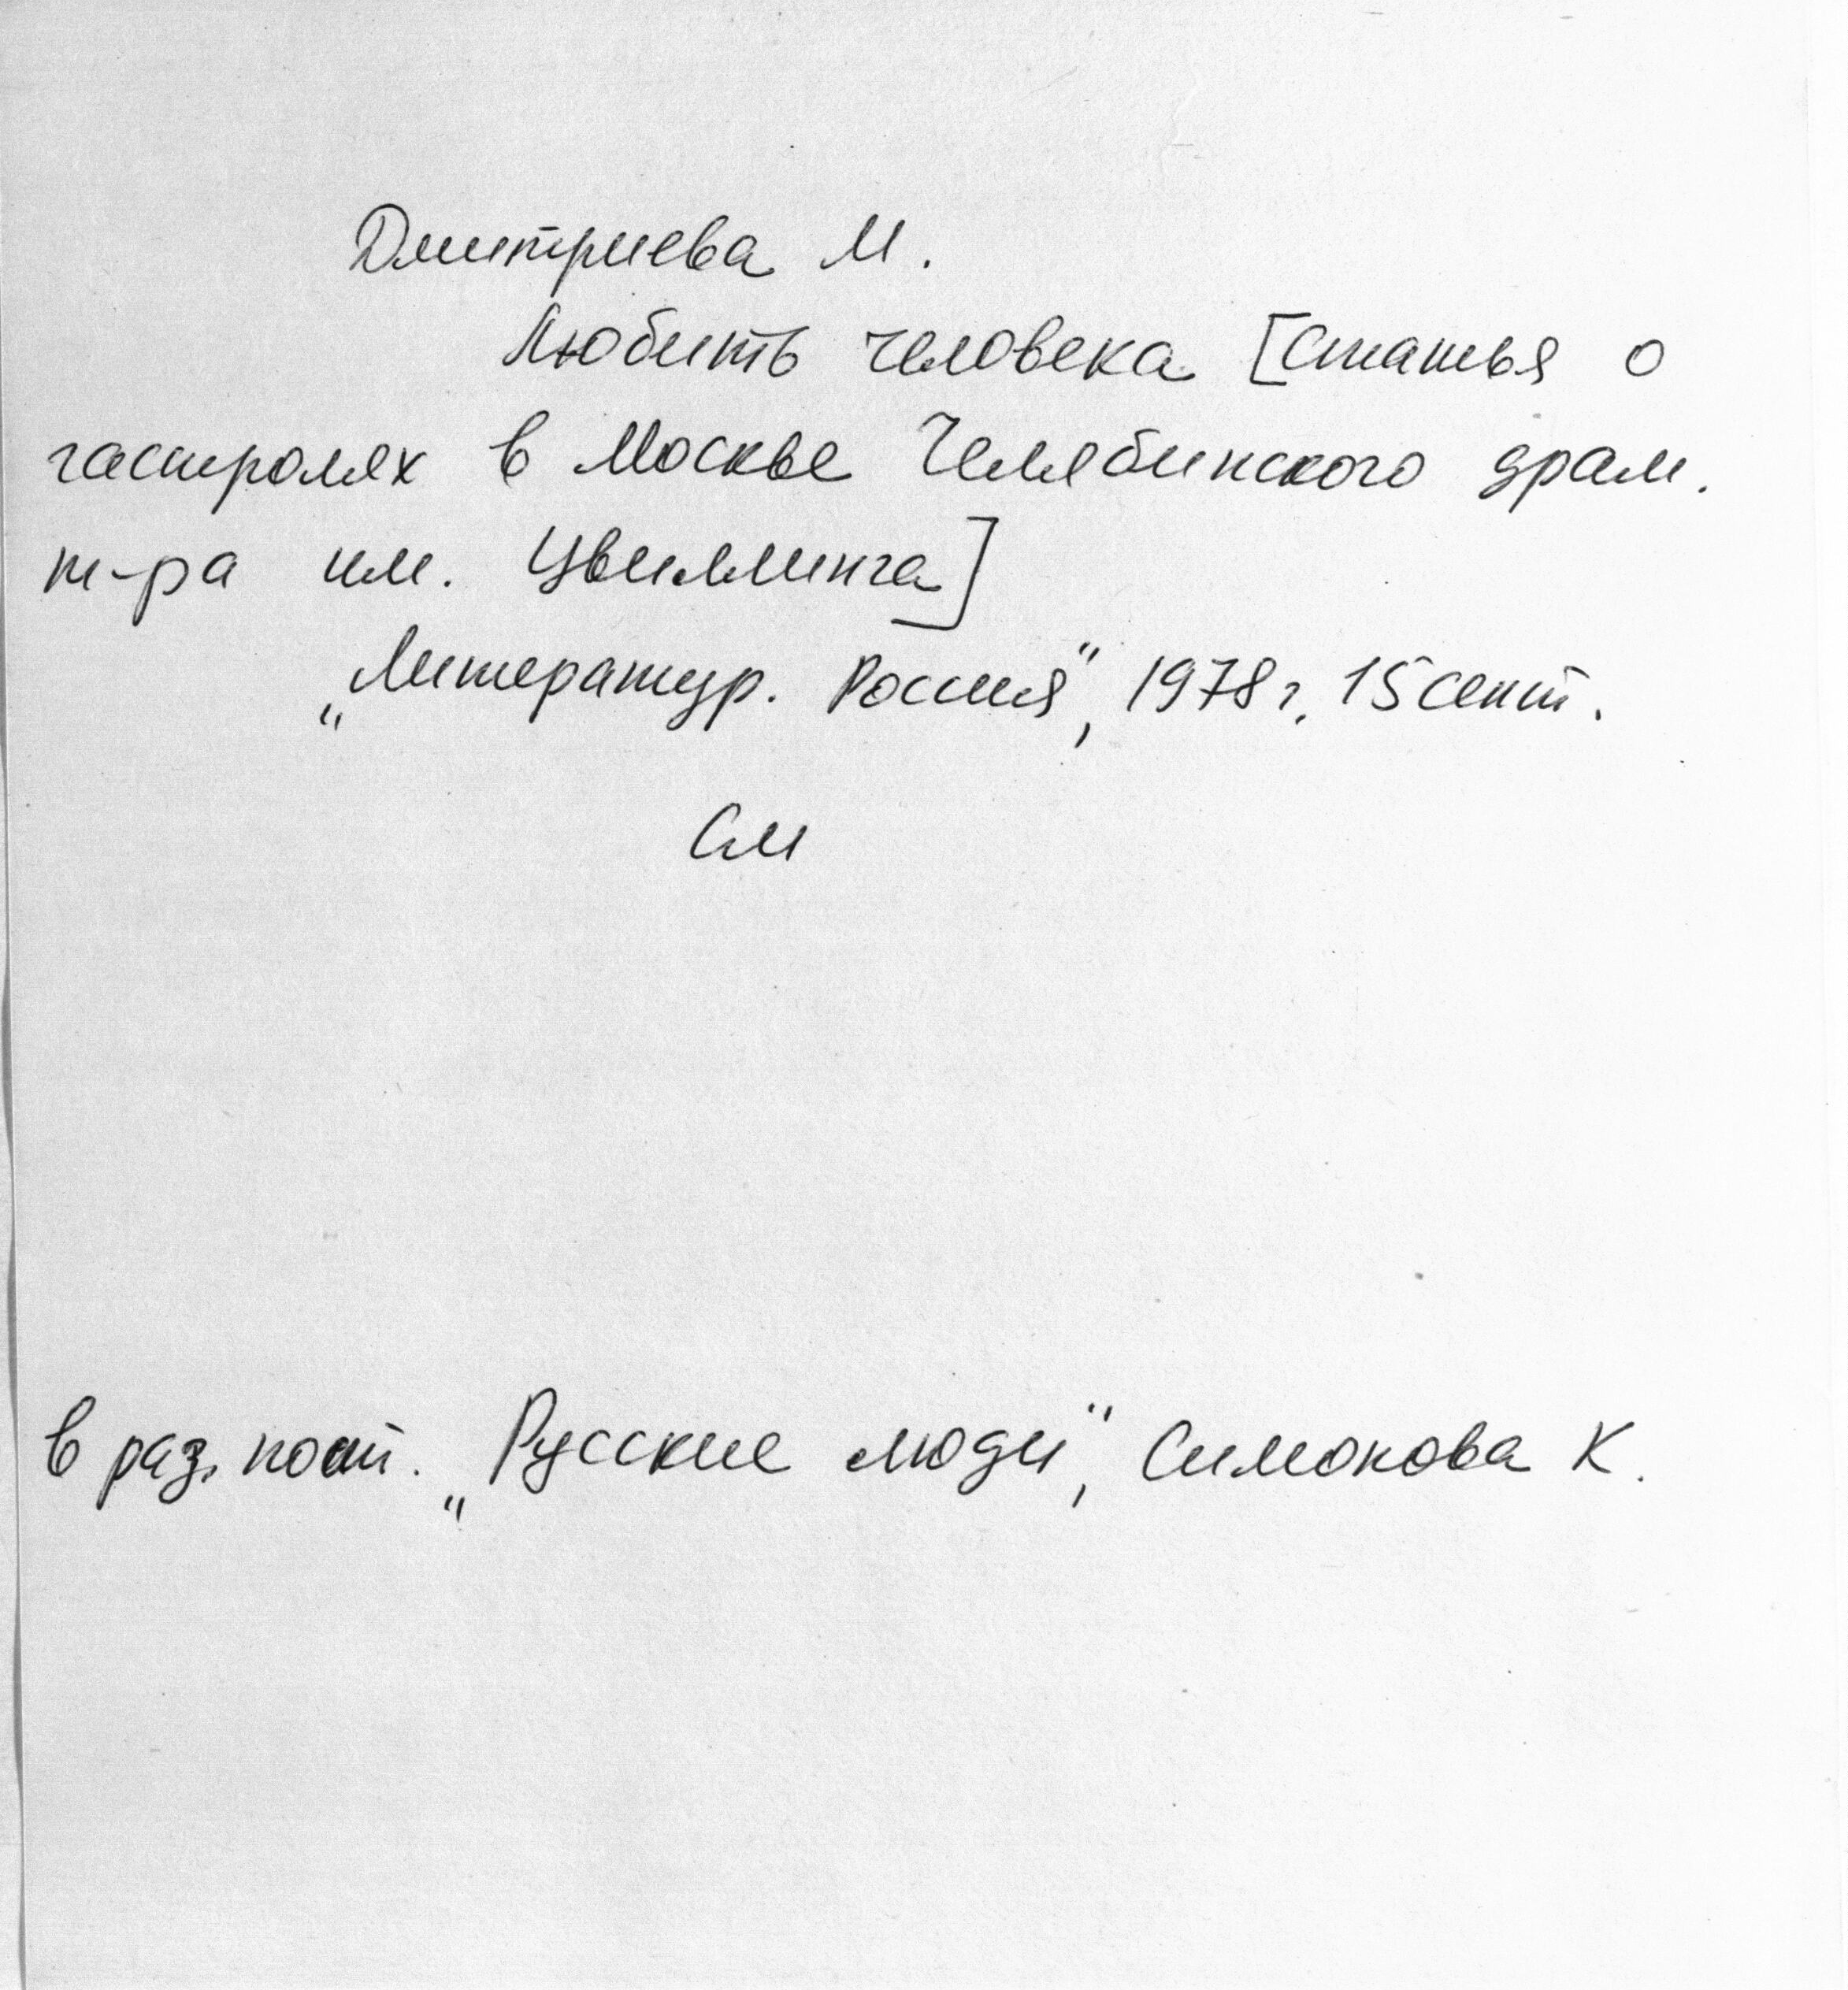 Дмитриева М.
Любить человека [Статья о
гастролях в Москве Челябинского драм.
т-ра им. Цвиллинга]
„Литератур. Россия", 1978 г. 15 сент.
См
в раз. пост. „Русские люди", Симонова К.